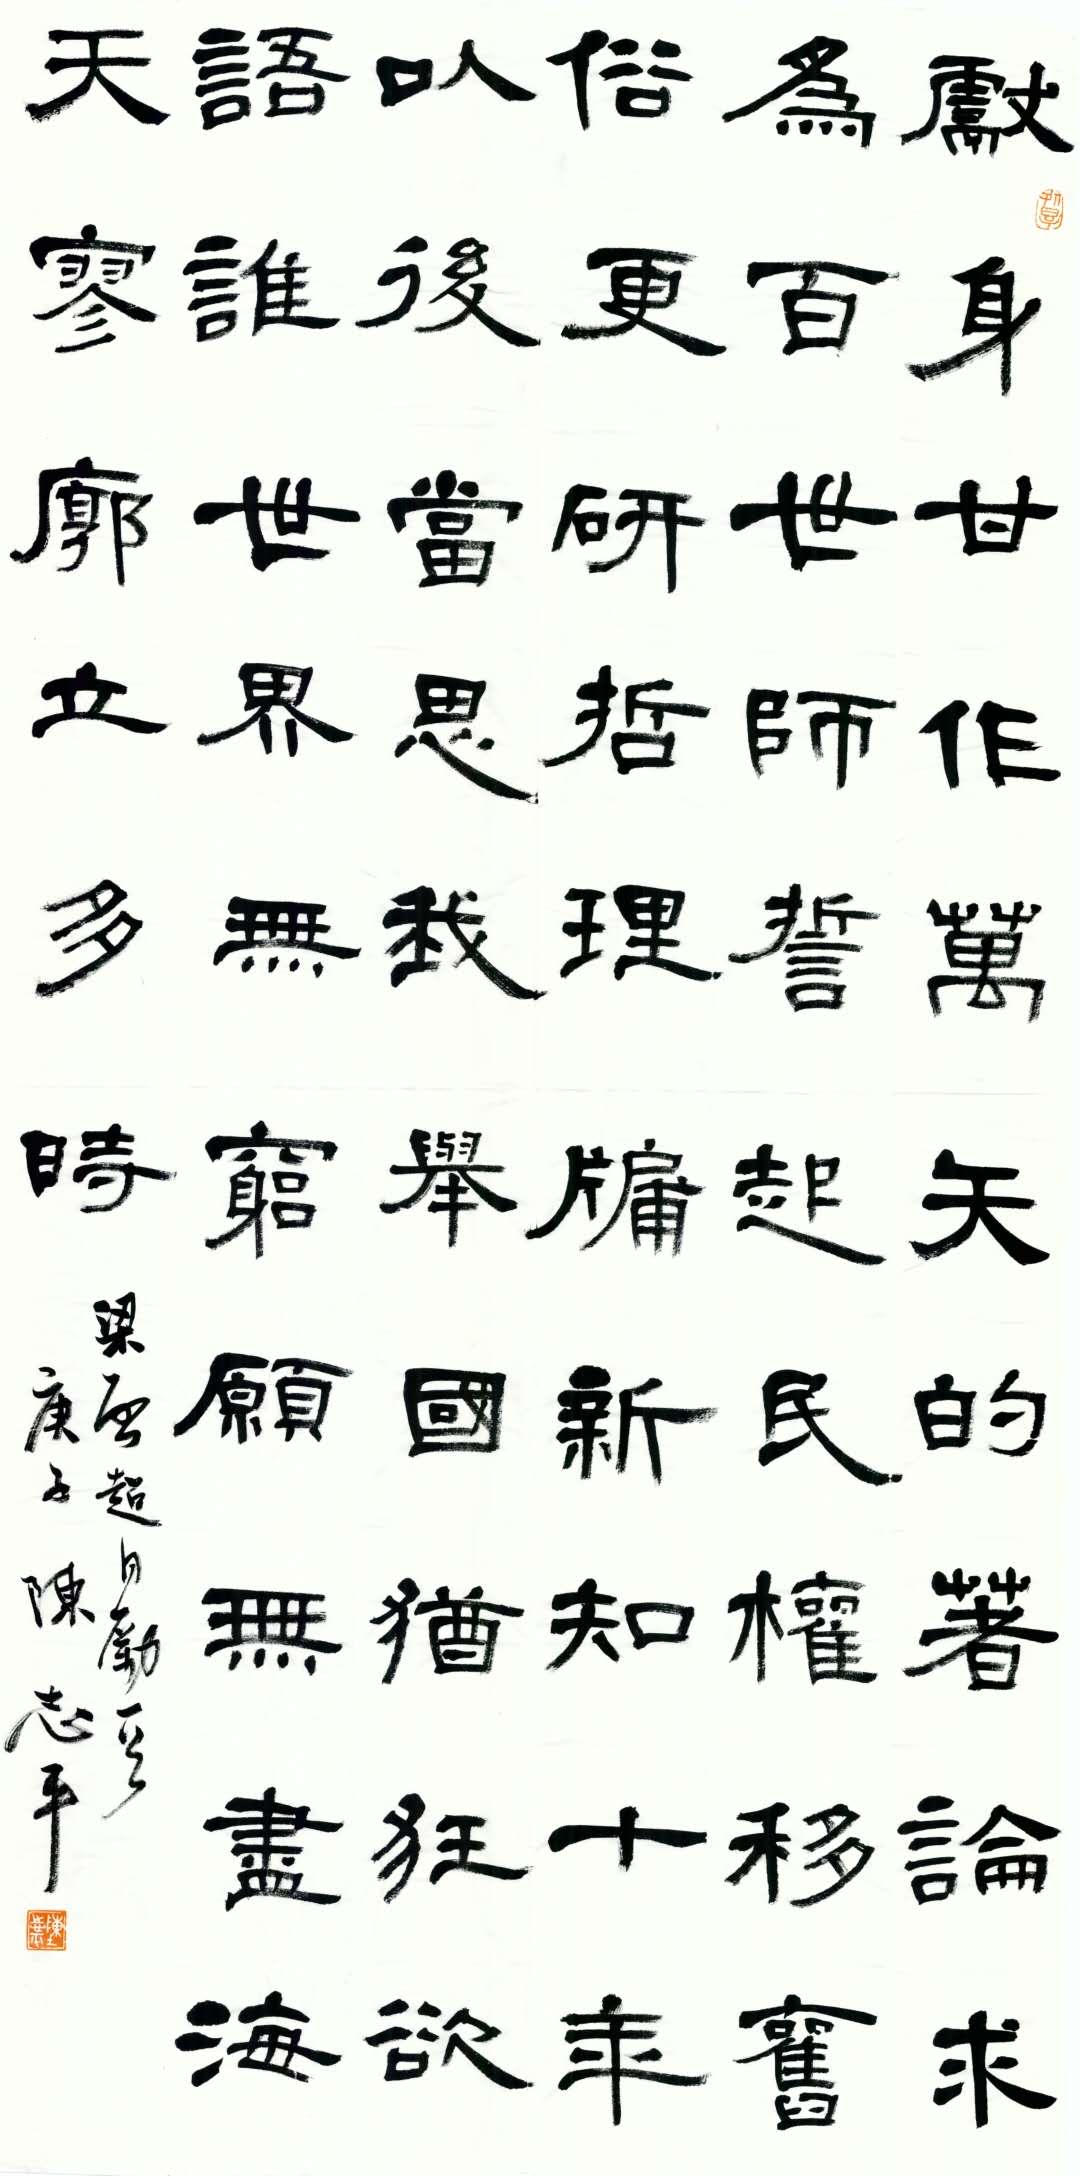 獻身甘作萬矢的著論求
為百世師誓起民權移舊
俗更研哲理牖新知十年
以後當思我舉國猶狂欲
語誰世界無窮願無盡海
天寥廓立多時
梁啓超自勵
庚子陳志平